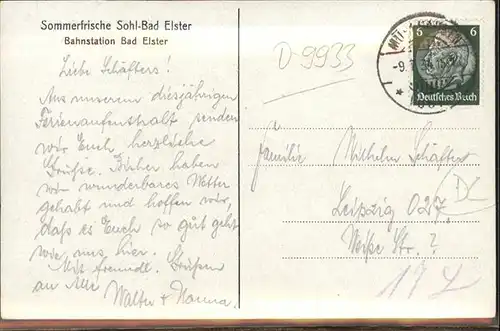 Sommerfrische Sohl-Bad Elster
Bahnstation Bad Elster
Liebe Schäfters!
Aus unserem diesjährigen
Ferienaufenthalt senden
wir Euch herzliche
Grüße. Bisher haben
wir wunderbares Wetter
gehabt und hoffen wir,
daß es Euch so gut geht
wie uns hier.
Mit freundl. Grüßen
an Alle
Walter + Hanna.
D-9933
6 6
Deutsches Reich
Familie Wilhelm Schäfter
Leipzig O27.
Weiße Str. ?